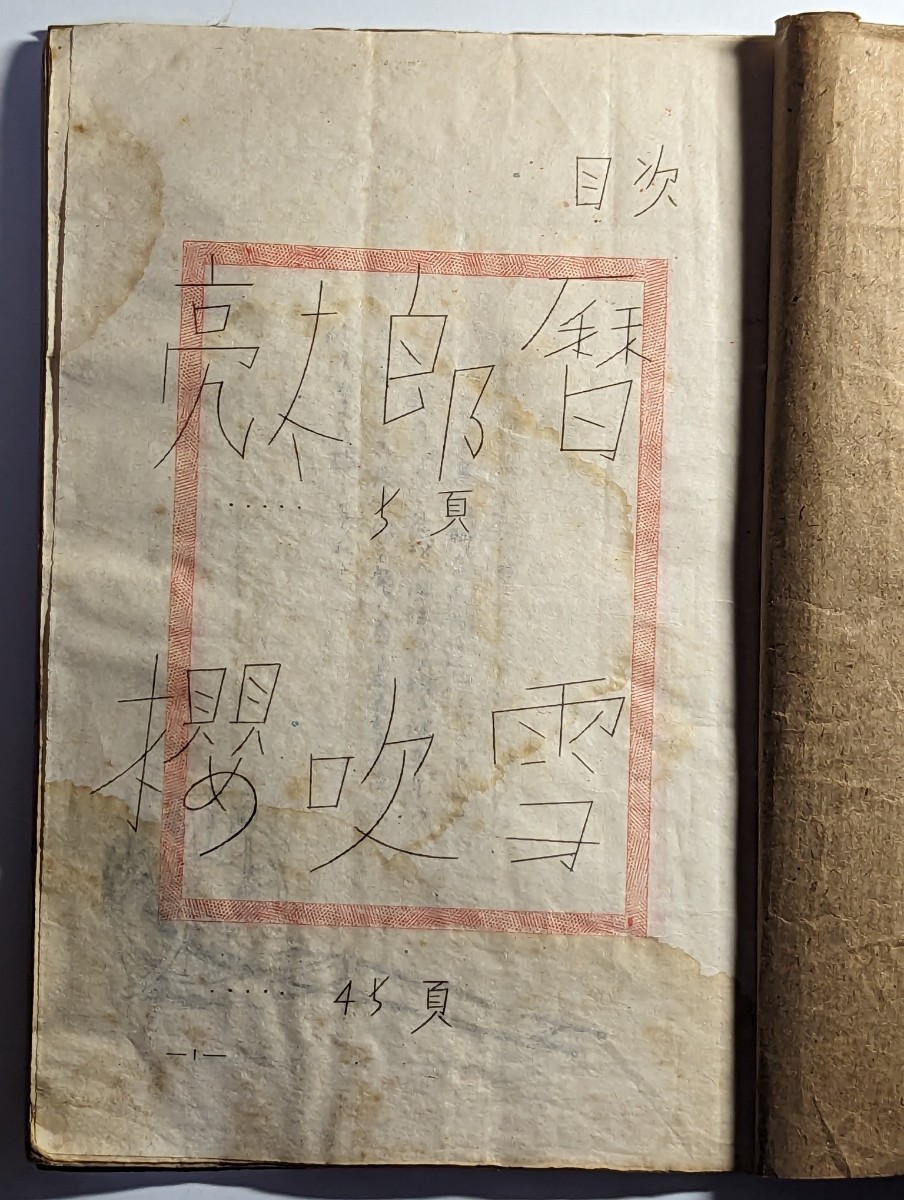 目次
亮太郎曆
‥‥‥5頁
櫻吹雪
‥‥‥45頁
—1—